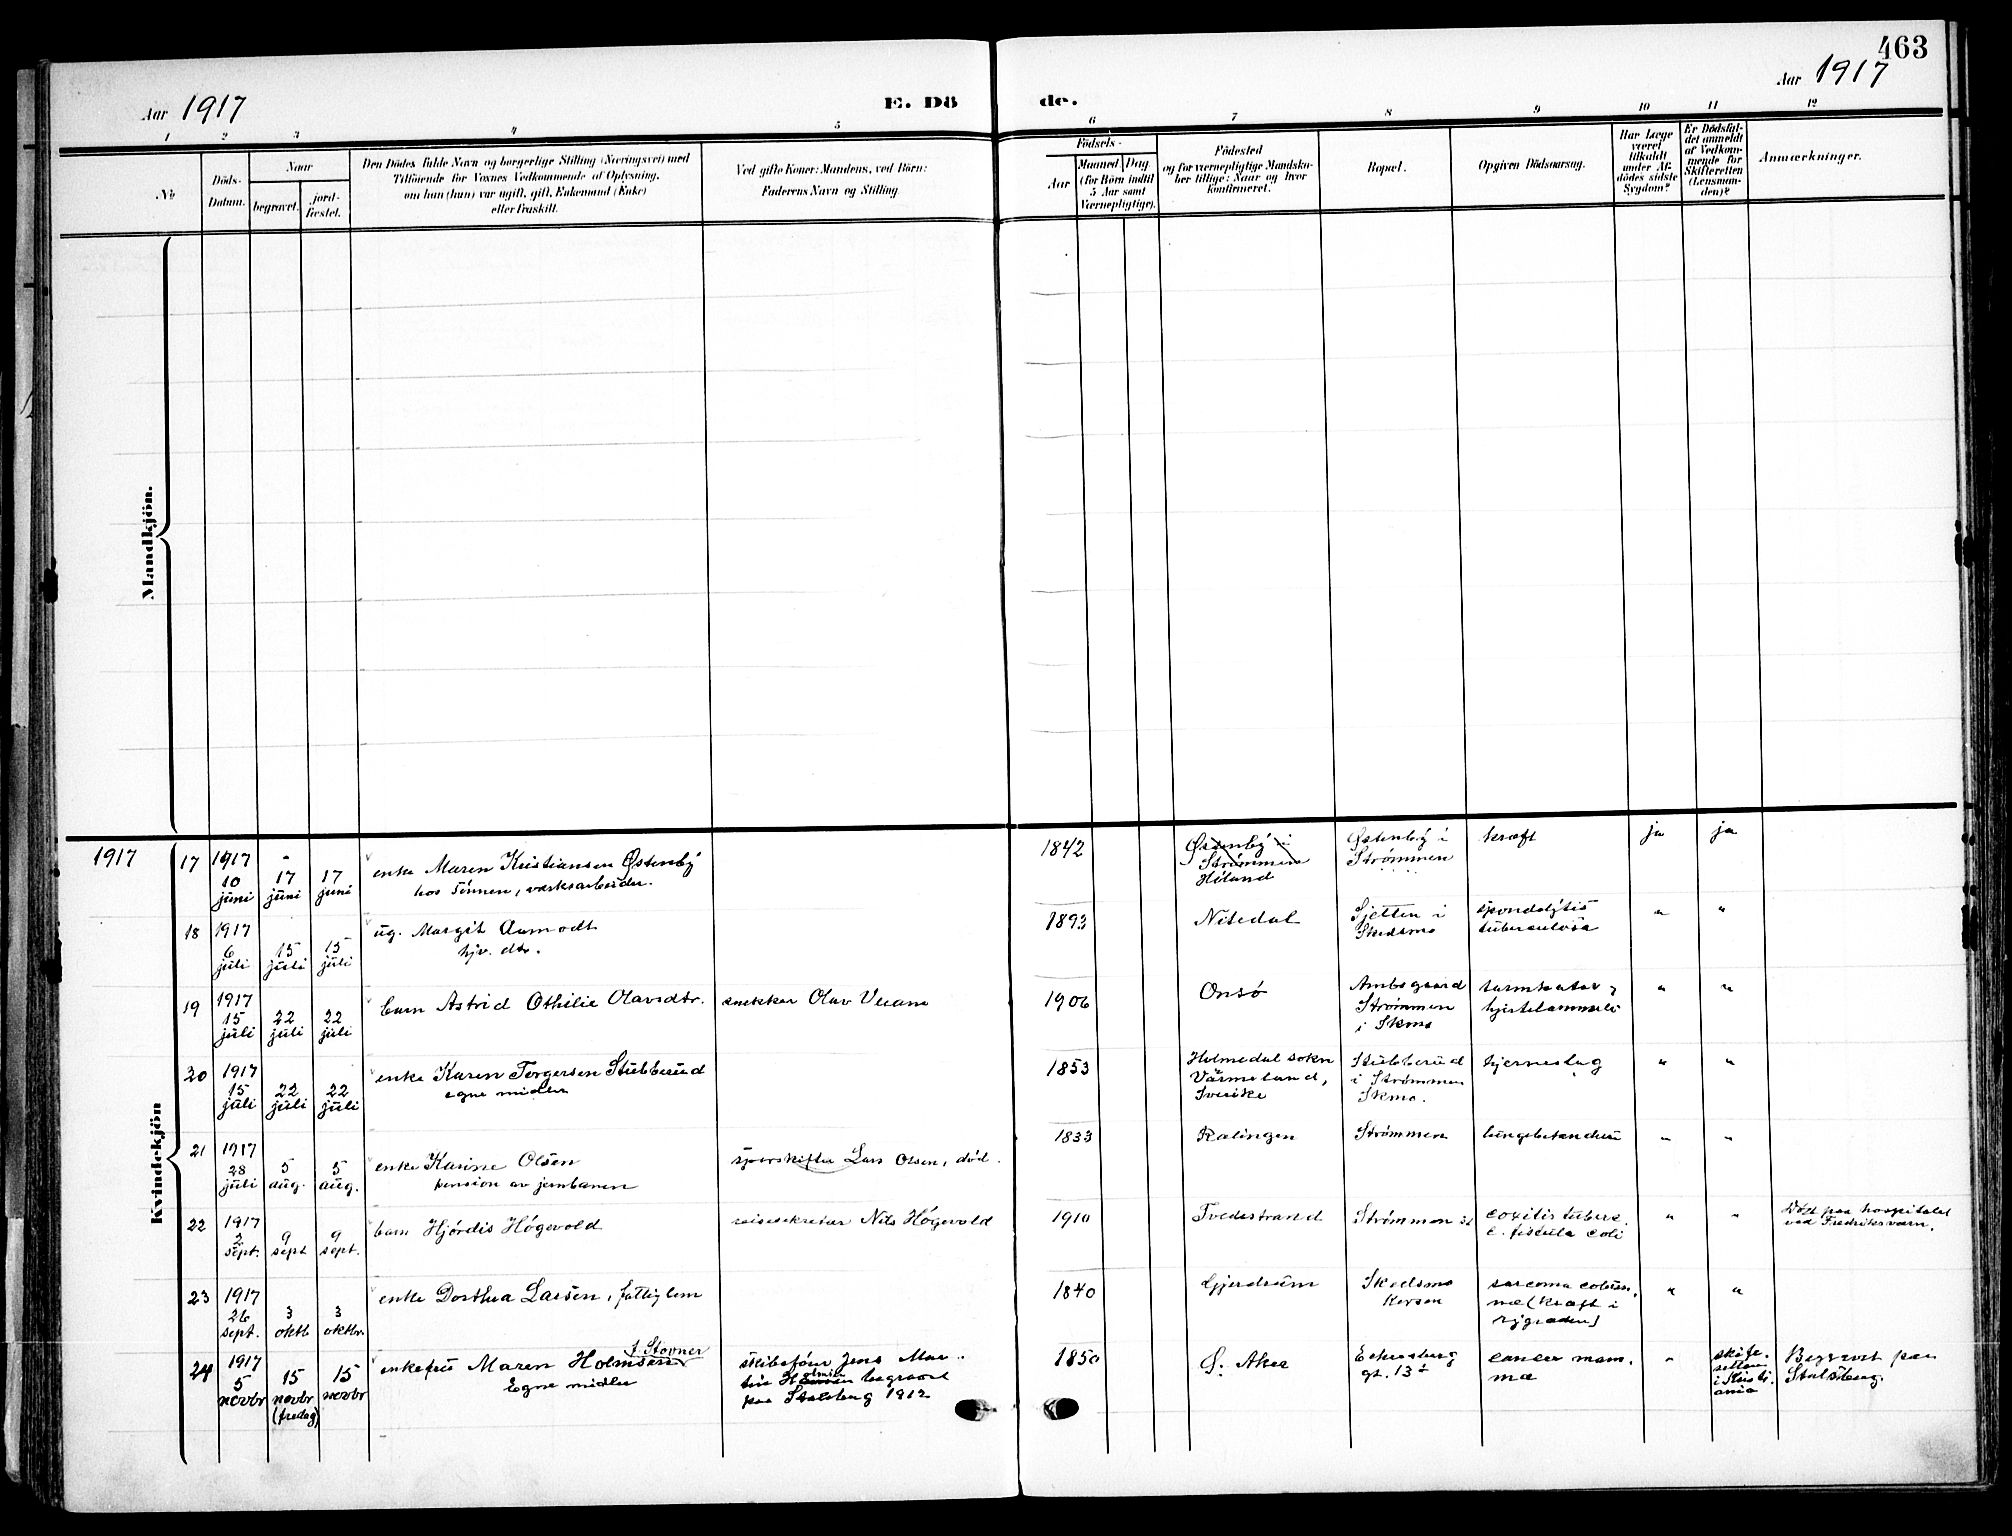 463
Aar 1917
E. Dö
de.
Aar 1917
1 2 3 4 5 6 7 8 9 10 11 12
No
Döds-Datum.
Naar
begravet.
jord-fæstet.
Den Dödes fulde Navn og borgerlige Stilling (Næringsvei) med
Tilföiende for Voxnes Vedkommende af Oplysning,
om han (hun) var ugift, gift, Enkemand (Enke)
eller fraskilt.
Ved gifte Koner: Mandens, ved Börn:
Faderens Navn og Stilling.
Födsels-
Aar
Maaned Dag
(for Börn indtil
5 Aar samt
Værnepligtige).
Födested
og for værnepligtige Mandska-
ber tillige: Naar og hvor
konfirmeret.
Bopæl.
Opgiven Dödsaarsag.
Har Læge
været
tilkaldt
under Af-
dödes sidste
Sygdom?
Er Dödsfal-
det anmeldt
af Vedkom-
mende for
Skifteretten
(Lensman-
den)?
Anmærkninger.
Mandkjön.
Kvindekjön
1917
17 1917 10 juni 17 juni 17 juni
enke Maren Kristiansen Østenby
hos sønnen, verksarbeider.
1842
Østenby i
Strømmen
Høland
Østenby i
Strømmen
kræft
ja ja
18 1917 6 juli 15 juli 15 juli
ug. Margit Aamodt
hjv. dtr.
1893
Nitedal
Sjetten i
Skedsmo
spondolytis
tuberculosa
" "
19 1917 15 juli 22 juli 22 juli
barn Astrid Othilie Olavsdtr.
snekker Olav Veum
1906
Onsø
Ambsgaard
Strømmen
i Skmo
tarmkatar,
hjertelammelse
" "
20 1917 15 juli 22 juli 22 juli
enke Karen Torgersen Stubberud
egne midler
1853
Holmedal sokn
Värmeland,
Sverike
Stubberud
i Strømmen
Skmo.
hjerneslag
" "
21 1917 28 juli 5 aug. 5 aug.
enke Karine Olsen
pension av jernbanen
sporskifter Lars Olsen, død.
1833
Rælingen
Strømmen
lungebetændelse
" "
22 1917 2 sept. 9 sept 9 sept.
barn Hjørdis Høgevold
reisesekretær Nils Høgevold
1910
Tvedestrand
Strømmen st
coxitis tuberc.
c. fistula coli
" "
Død paa hospitalet
ved Fredriksværn.
23 1917 26 sept. 3 oktb 3 oktbr.
enke Dorthea Larsen, fattiglem
1840
Gjerdrum
Skedsmo
Korsen
sarcoma colum-
næ (kræft i
rygraden)
" "
24 1917 5 novbr 15 novbr (fredag) 15 novbr
f. Stovner
enkefru Maren Holmsen
Egne midler
skibsfører Jens Mar-
tin Hansen begravet
paa Stalsberg 1912
1850
Ø. Aker
Eckersberg
gt. 13
cancer mam-
mæ
"
skifte-
retten
i Kristi-
ania
Begravet paa
Stalsberg.